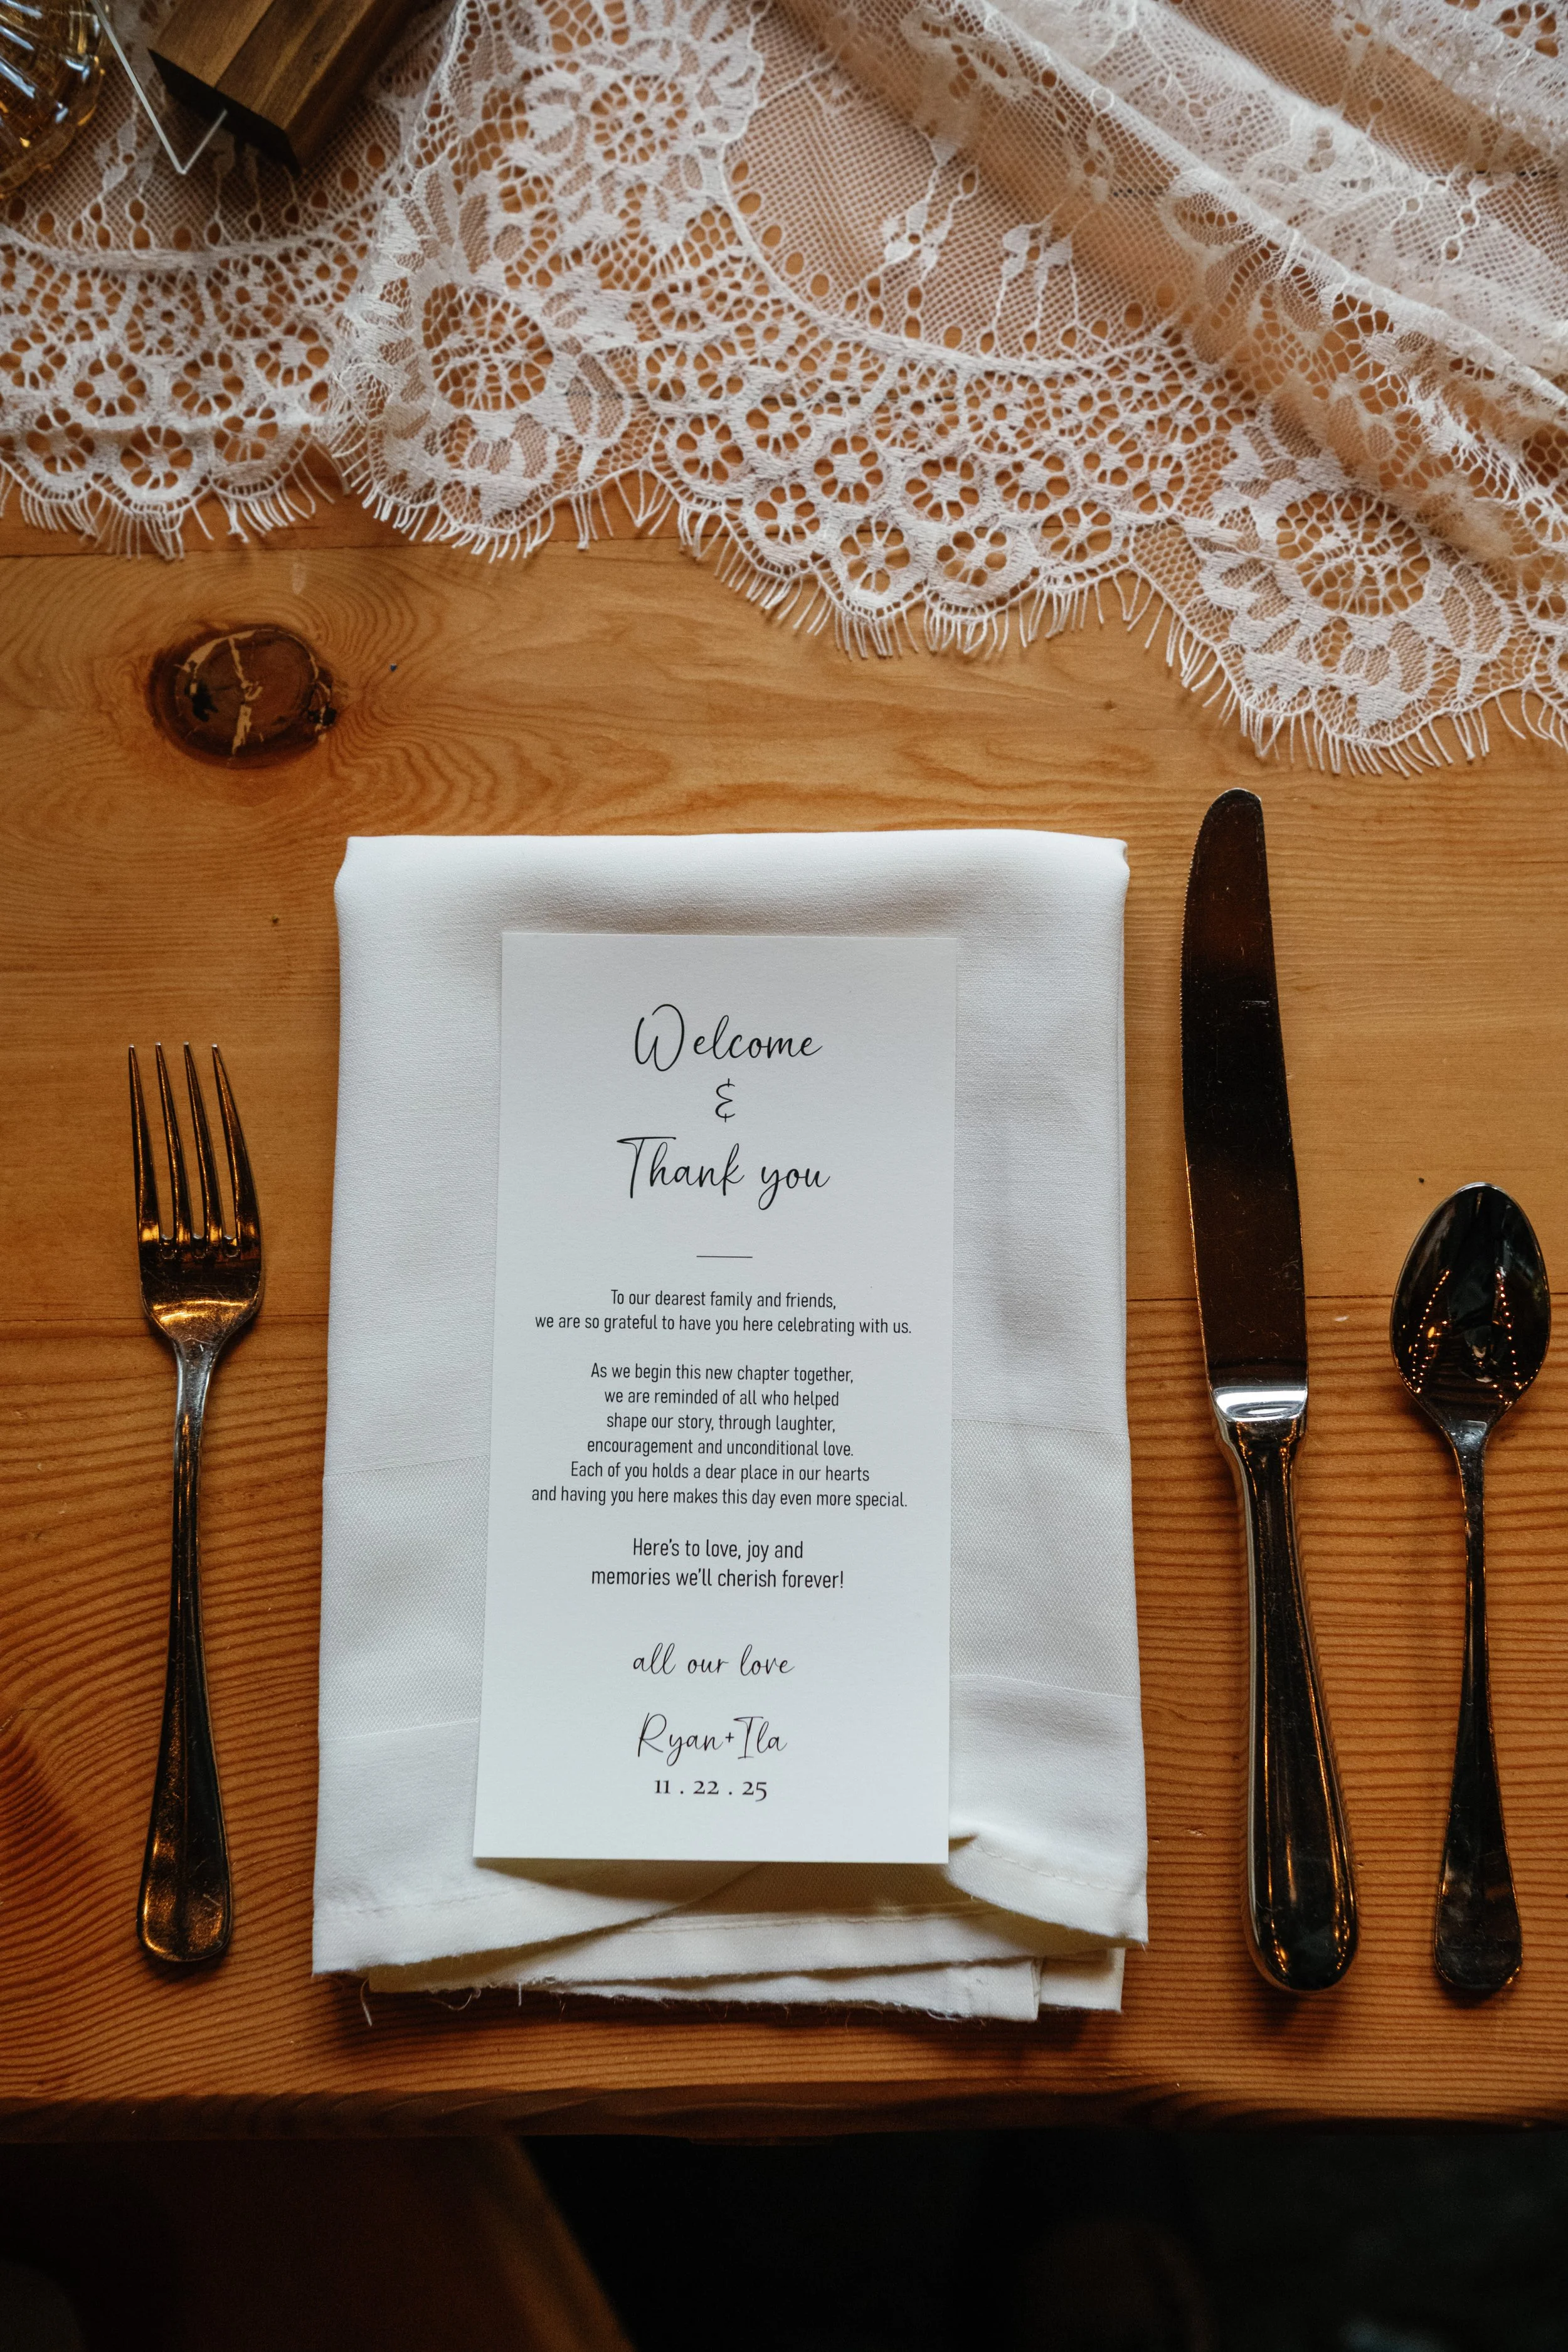 Welcome
&
Thank you
To our dearest family and friends,
we are so grateful to have you here celebrating with us.
As we begin this new chapter together,
we are reminded of all who helped
shape our story, through laughter,
encouragement and unconditional love.
Each of you holds a dear place in our hearts
and having you here makes this day even more special.
Here's to love, joy and
memories we'll cherish forever!
all our love
Ryan+Ila
11 . 22 . 25